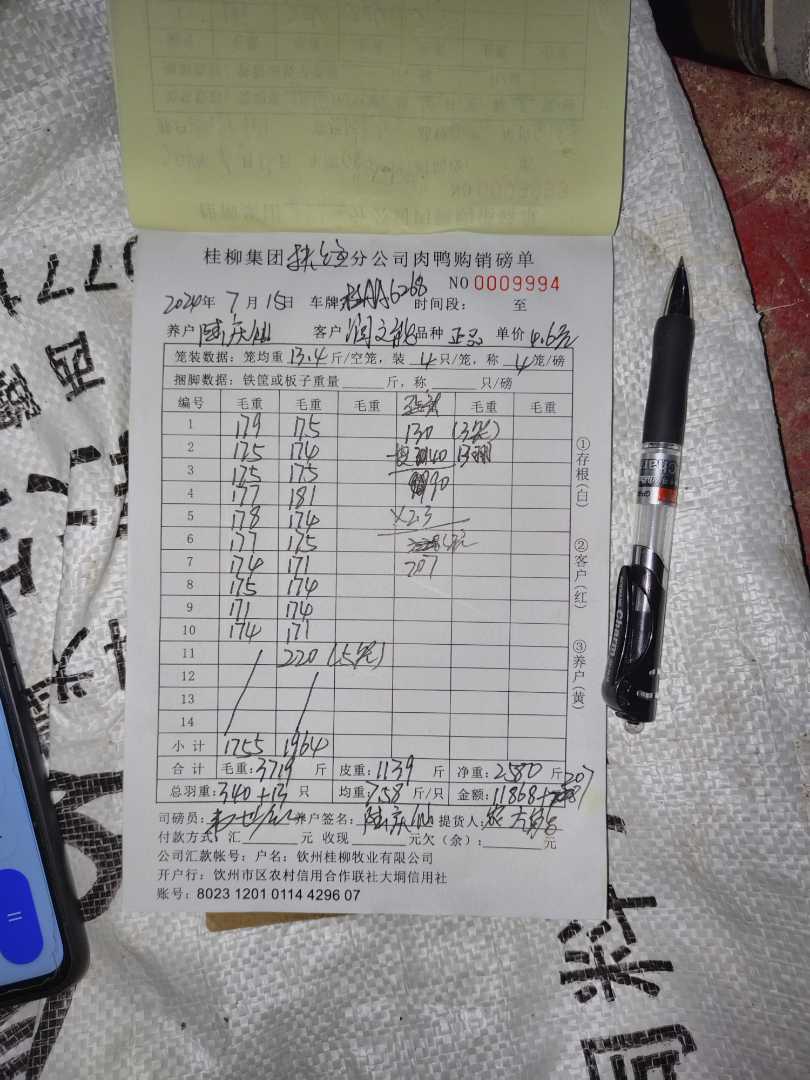 桂柳集团钦州分公司肉鸭购销磅单
NO 0009994
2024年 7 月 15日 车牌: 6268 时间段: 至
养户 陆庆仙 客户 品种 正品 单价 4.6元
笼装数据: 笼均重 13.4 斤/空笼, 装 4 只/笼, 称 4 笼/磅
捆脚数据: 铁筐或板子重量 斤, 称 只/磅
编号 毛重 毛重 毛重 毛重 毛重
1 179 175 130 (3笼)
2 175 174 40 13
3 175 175 90
4 177 181
5 178 174 ×2.3
6 177 175
7 174 171 207
8 175 174
9 171 174
10 174 171
11 220 (5笼)
12
13
14
小计 1755 1964
合计 毛重: 3719 斤 皮重: 1139 斤 净重: 2580 斤 207
总羽重: 340+13 只 均重: 7.58 斤/只 金额: 11868+
司磅员: 养户签名: 陆庆仙 提货人:
付款方式: 汇 元 收现 元欠(余): 元
公司汇款帐号: 户名: 钦州桂柳牧业有限公司
开户行: 钦州市区农村信用合作联社大垌信用社
账号: 8023 1201 0114 4296 07
①存根(白)
②客户(红)
③养户(黄)